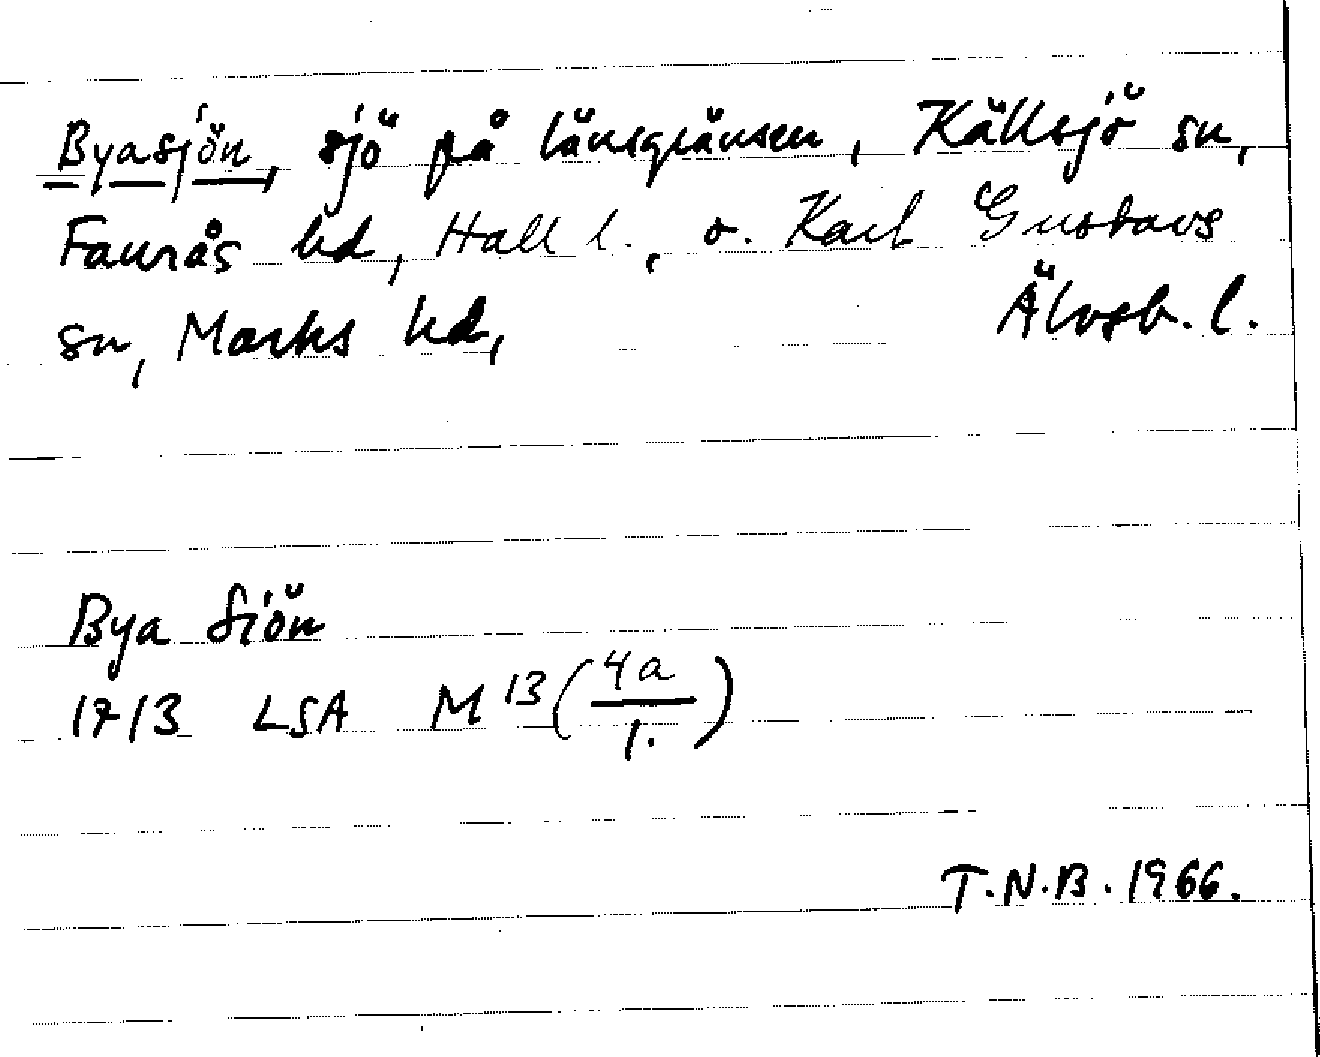 Byasjön, sjö på länsgränsen, Källsjö sn,
Faurås hd, Hall l., o. Karl Gustavs
sn, Marks hd, Älvsb. l.
Bya Siön
1713 LSA M 13 (4a/1.)
T.N.B. 1966.